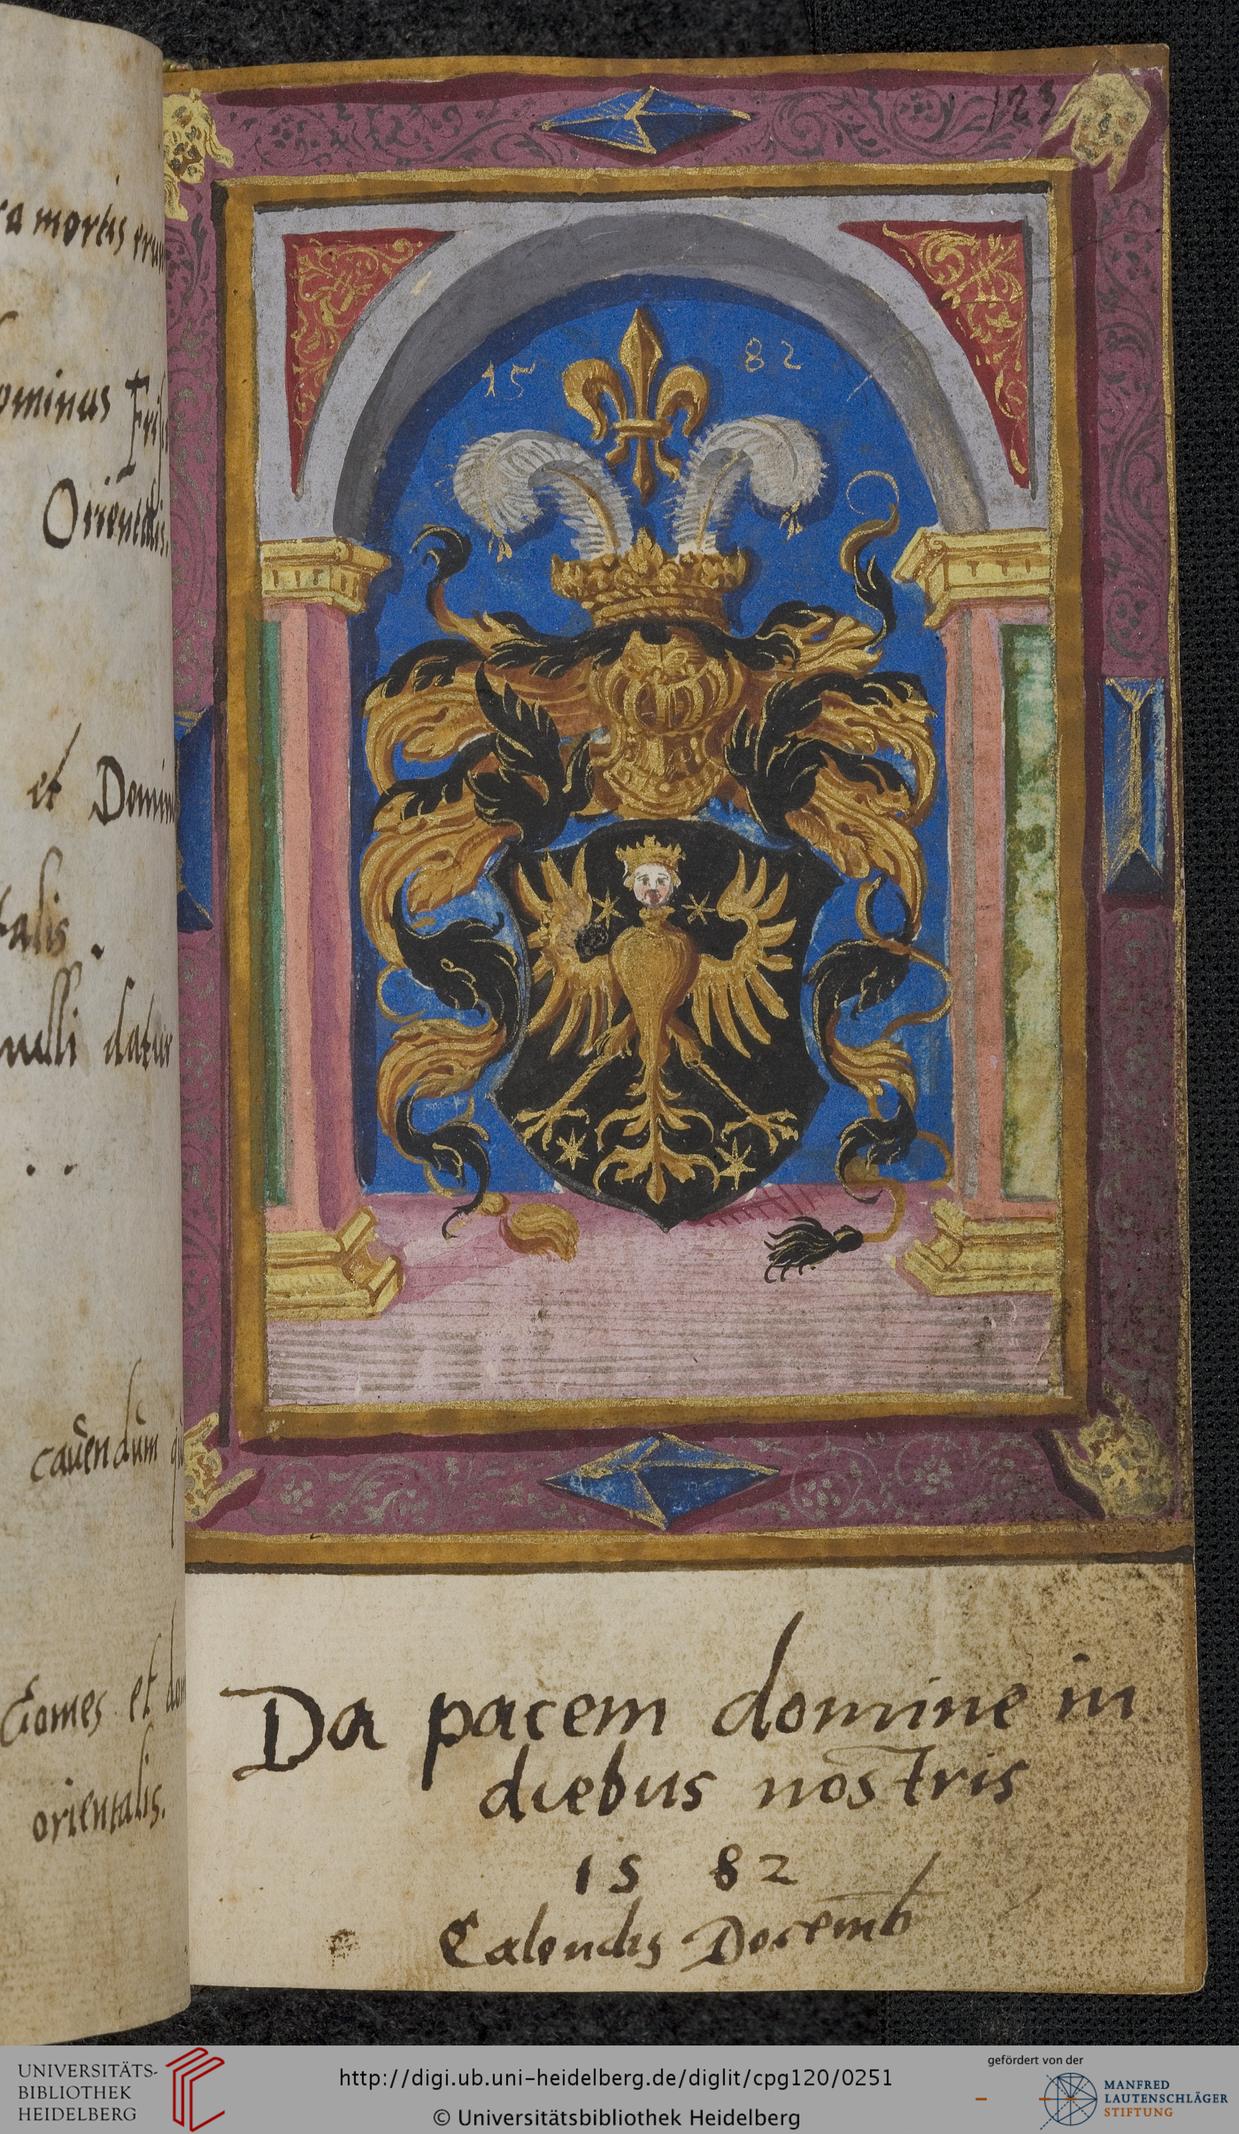 ra mortis
ominus Fris
Orientalis.
et Domin
talis.
nulli datur
cavendum
Comes et dom
orientalis.
123
15 82
Da pacem domine in
diebus nostris
15 82
Calendis Decemb
UNIVERSITÄTS-
BIBLIOTHEK
HEIDELBERG
http://digi.ub.uni-heidelberg.de/diglit/cpg120/0251
© Universitätsbibliothek Heidelberg
gefördert von der
MANFRED
LAUTENSCHLÄGER
STIFTUNG